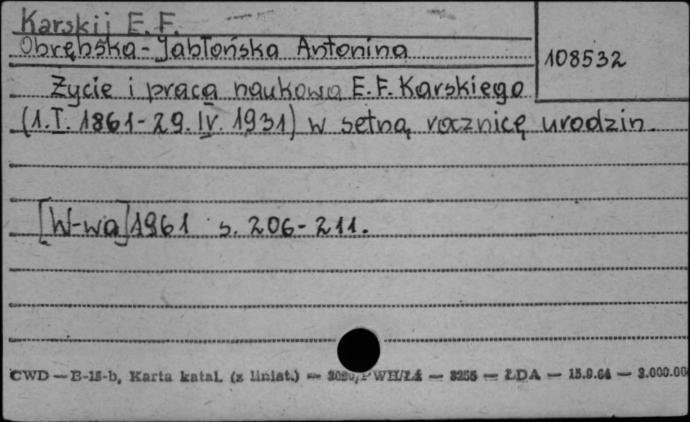 Karskij E. F.
Obrębska-Jabłońska Antonina
108532
Życie i praca naukowa E.F. Karskiego
(1.I. 1861-29.IV. 1931) w setną rocznicę urodzin.
[W-wa] 1961 s. 206-211.
CWD — B-15-b, Karta katal. (z liniat.) — PWH/Łź — 8255 — ŁDA — 15.9.64 — 3.000.00